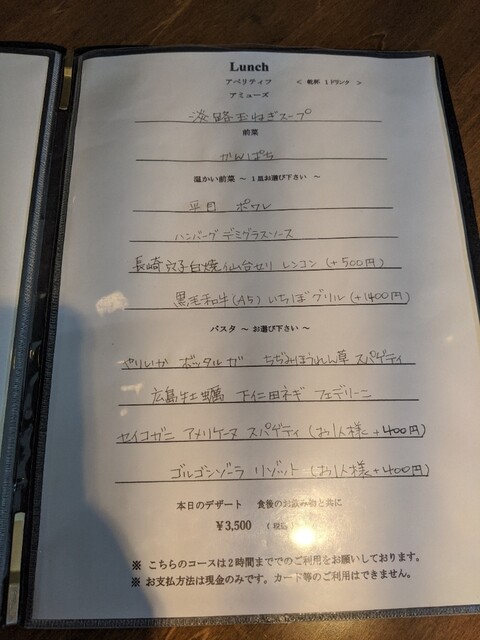 Lunch
アペリティフ ＜ 乾杯 1ドリンク ＞
アミューズ
淡路玉ねぎスープ
前菜
かんぱち
温かい前菜 ～ 1皿お選び下さい ～
平目 ポワレ
ハンバーグ デミグラスソース
長崎 穴子白焼 仙台セリ レンコン (+500円)
黒毛和牛(A5) いちぼグリル (+1400円)
パスタ ～ お選び下さい ～
やりいか ボッタルガ ちぢみほうれん草 スパゲティ
広島牡蠣 下仁田ネギ フェデリーニ
セイコガニ アメリケーヌ スパゲティ (お1人様 +400円)
ゴルゴンゾーラ リゾット (お1人様 +400円)
本日のデザート 食後のお飲み物と共に
¥3,500 (税込
※ こちらのコースは2時間まででのご利用をお願いしております。
※ お支払方法は現金のみです。カード等のご利用はできません。